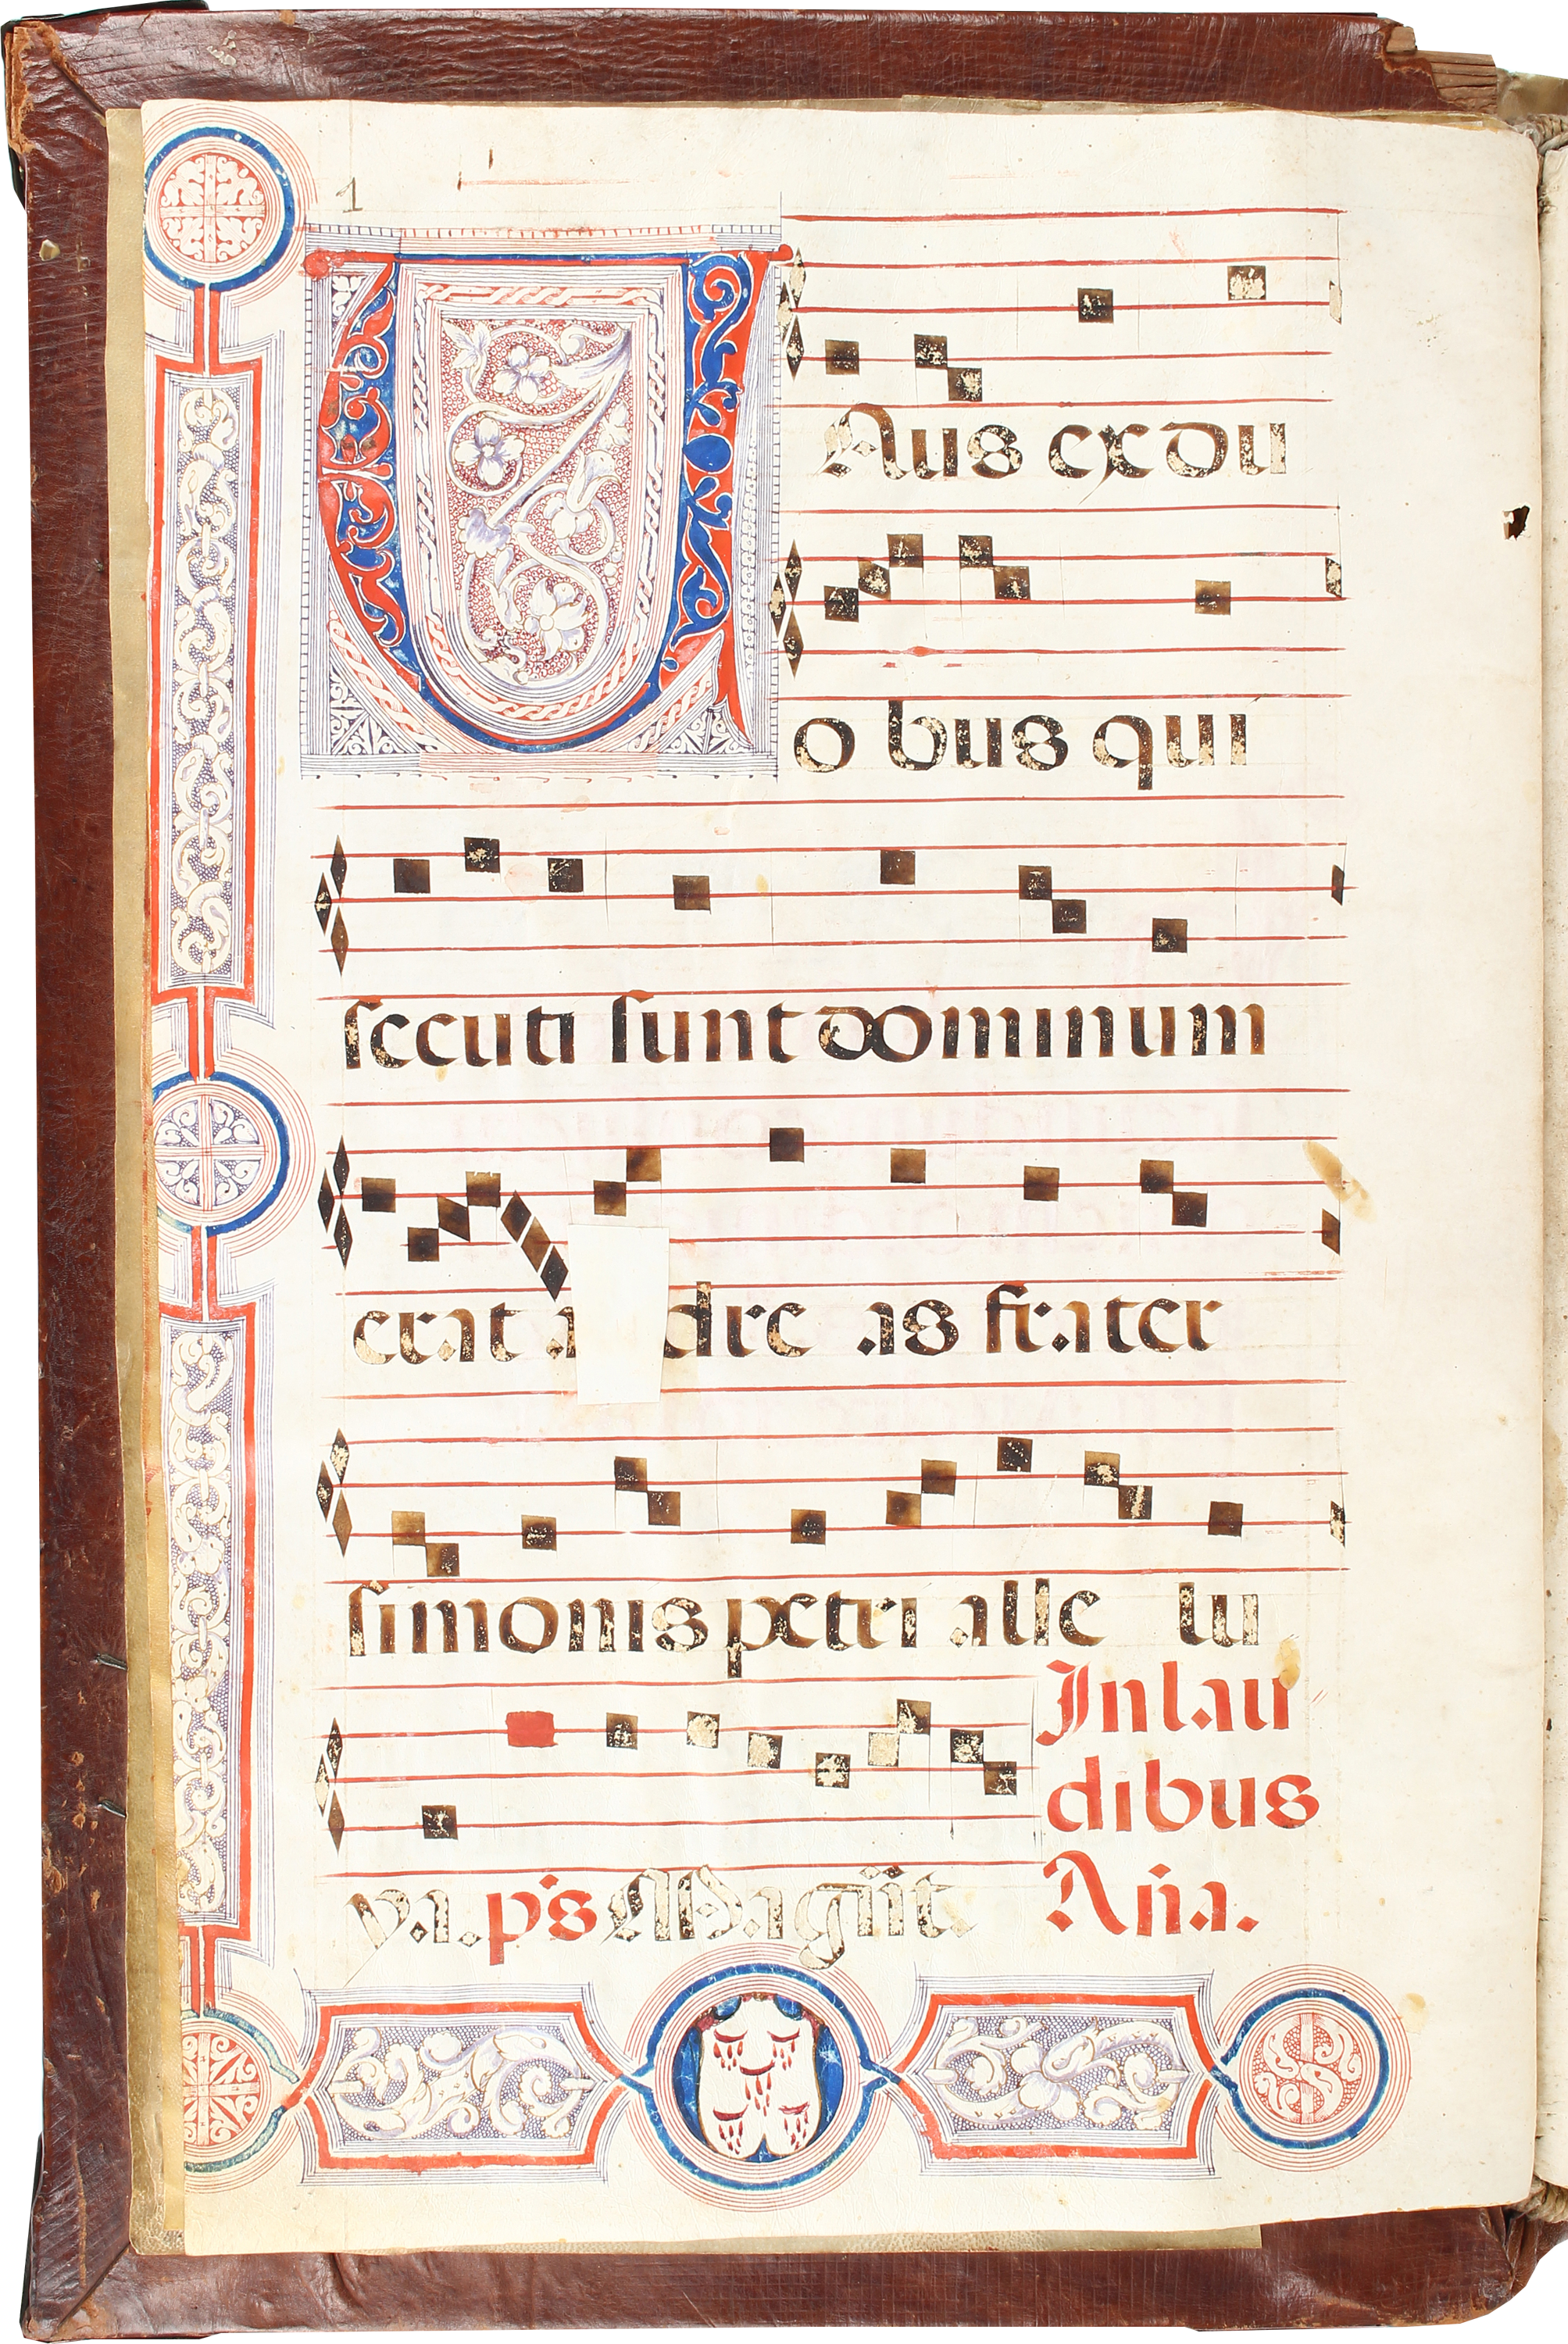 1
UAus ex du
o bus qui
secuti sunt dominum
erat a dre as frater
simonis petri alle lu
In lau
dibus
ya. ps Magnit.
Aña.